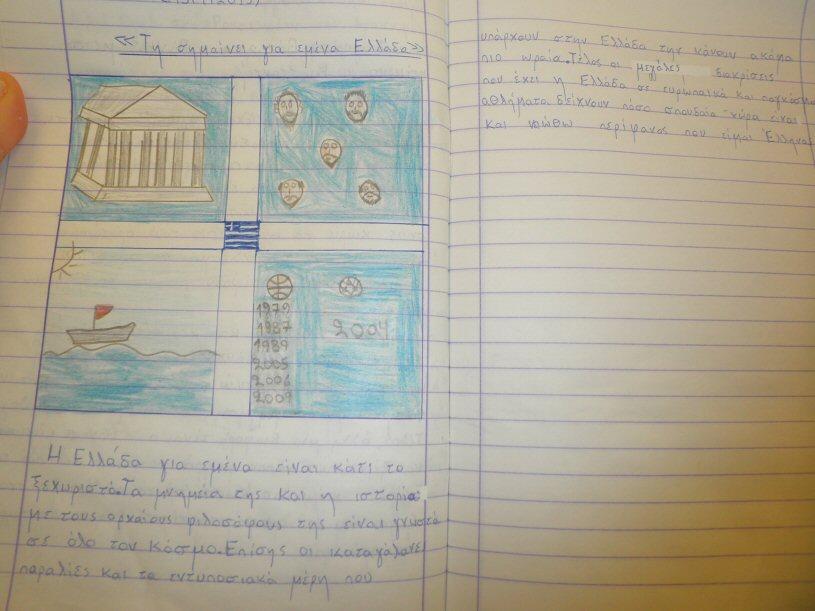 «Τη σημαίνει για εμένα Ελλάδα»
1979
1987
1989
2005
2006
2009
2004
Η Ελλάδα για εμένα είναι κάτι το
ξεχωριστό.Τα μνημεία της και η ιστορία
με τους αρχαίους φιλοσόφους της είναι γνωστά
σε όλο τον κόσμο.Επίσης οι καταγάλανες
παραλίες και τα εντυποσιακά μέρη που
υπάρχουν στην Ελλάδα την κάνουν ακόμα
πιο ωραία.Τέλος οι μεγάλες διακρίσεις
που έχει η Ελλάδα σε ευρωπαικά και παγκόσμια
αθλήματα δείχνουν πόσο σπουδαία χώρα είναι
και νιώθω περίφανος που είμαι Έλληνας